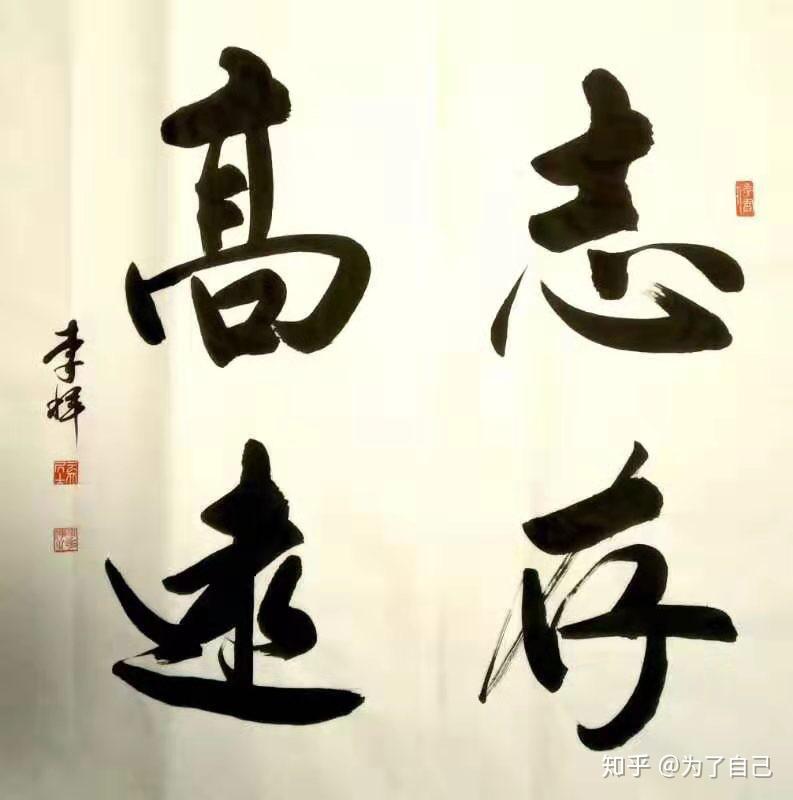 志存
高遠
李輝
知乎 @为了自己